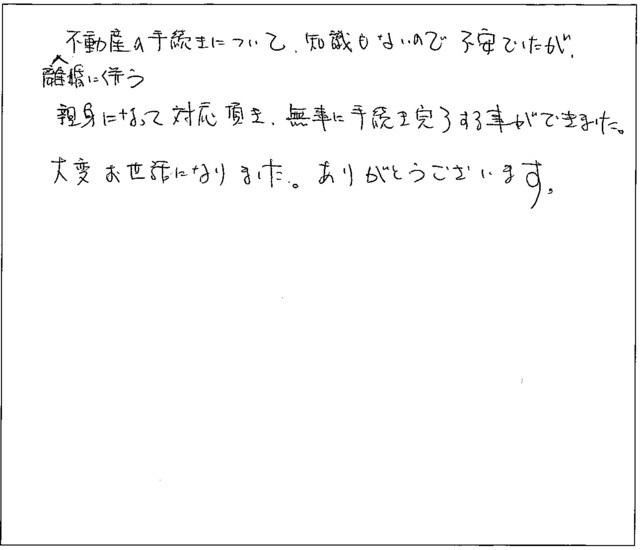 不動産の手続きについて、知識もないので不安でしたが、
離婚に伴う
親身になって対応頂き、無事に手続き完了する事ができました。
大変お世話になりました。ありがとうございます。